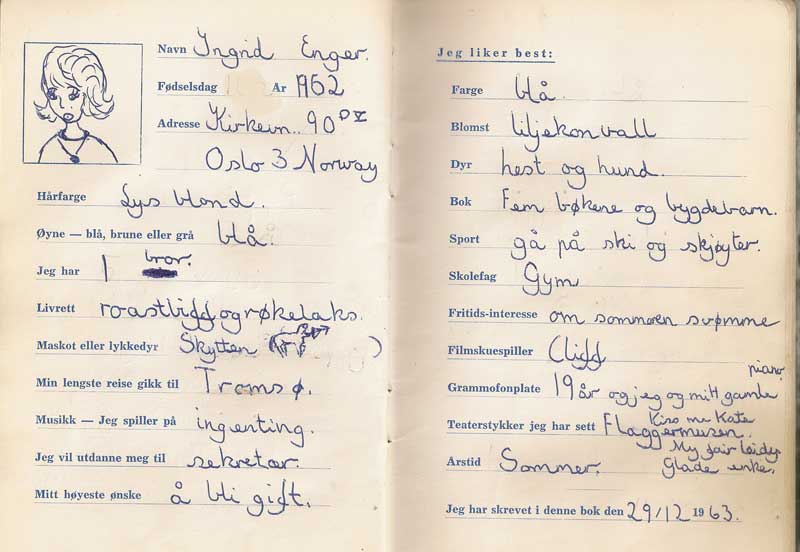 Navn Ingrid Enger.
Fødselsdag År 1952
Adresse Kirkevn.. 90 D V
Oslo 3 Norway
Hårfarge Lys blond.
Øyne — blå, brune eller grå blå.
Jeg har 1 bror.
Livrett roastbiff og røkelaks.
Maskot eller lykkedyr Skytten )
Min lengste reise gikk til Tromsø.
Musikk — Jeg spiller på ingenting.
Jeg vil utdanne meg til sekretær.
Mitt høyeste ønske å bli gift.
Jeg liker best:
Farge blå.
Blomst liljekonvall
Dyr hest og hund.
Bok Fem bøkene og bygdebarn.
Sport gå på ski og skjøyter.
Skolefag Gym
Fritids-interesse om sommeren svømme
Filmskuespiller Cliff
piano.
Grammofonplate 19 år og jeg og mitt gamle
Kiss me Kate
Teaterstykker jeg har sett Flaggermusen.
My fair leidy.
Årstid Sommer. Glade enke.
Jeg har skrevet i denne bok den 29/12 1963.